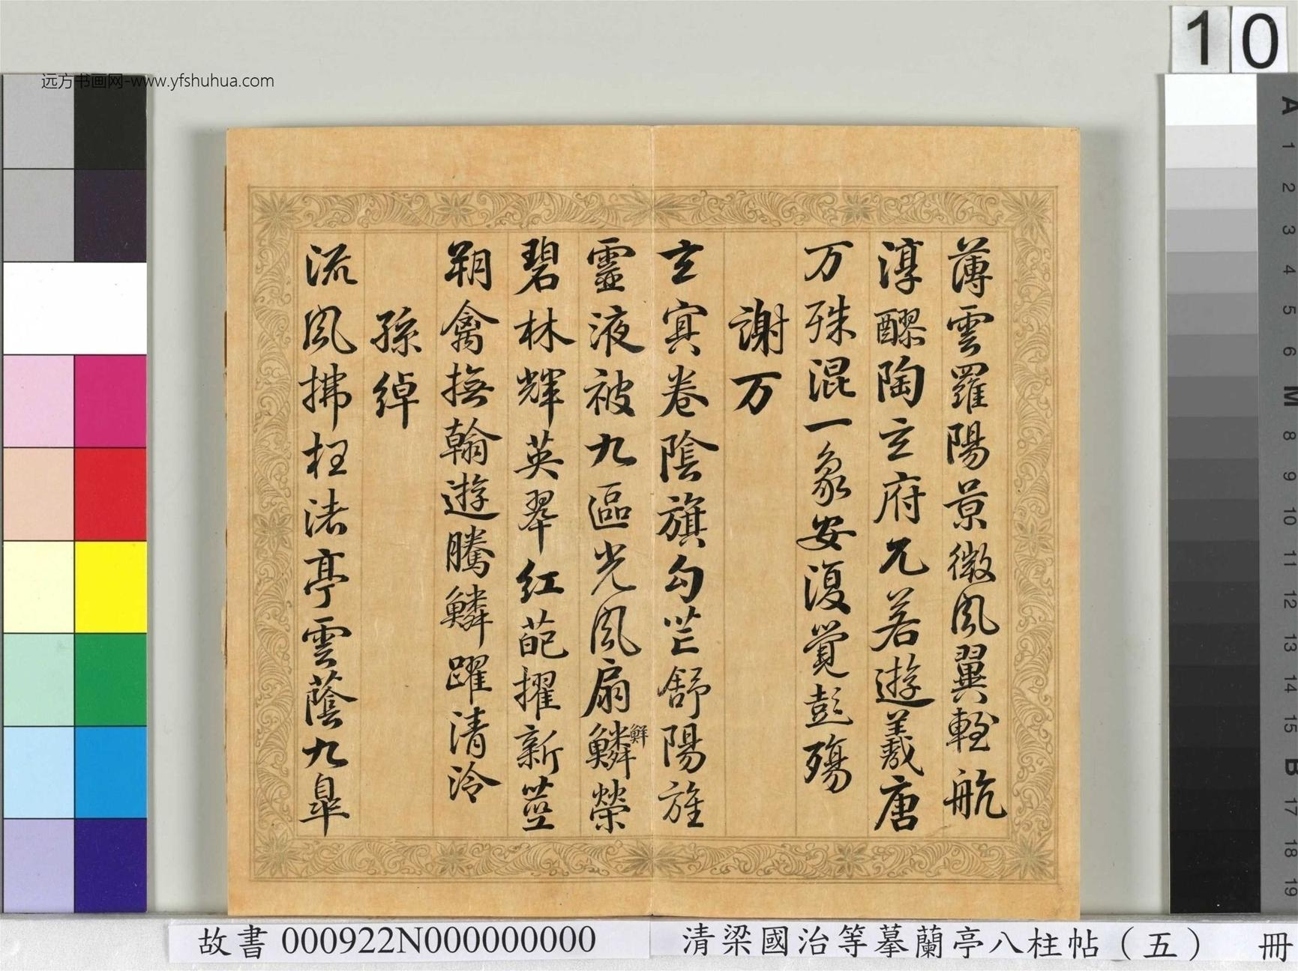 远方书画网-www.yfshuhua.com
10
薄雲羅陽景微風翼輕航
淳醪陶玄府兀若遊羲唐
万殊混一象安復覺彭殤
謝万
玄冥卷陰旗勾芒舒陽旌
靈液被九區光風扇鱗鮮榮
碧林輝英翠紅葩擢新莖
翔禽撫翰遊騰鱗躍清泠
孫綽
流風拂枉渚亭雲蔭九皐
A 1 2 3 4 5 6 M 8 9 10 11 12 13 14 15 B 17 18 19
故書 000922N000000000
清梁國治等摹蘭亭八柱帖（五） 冊